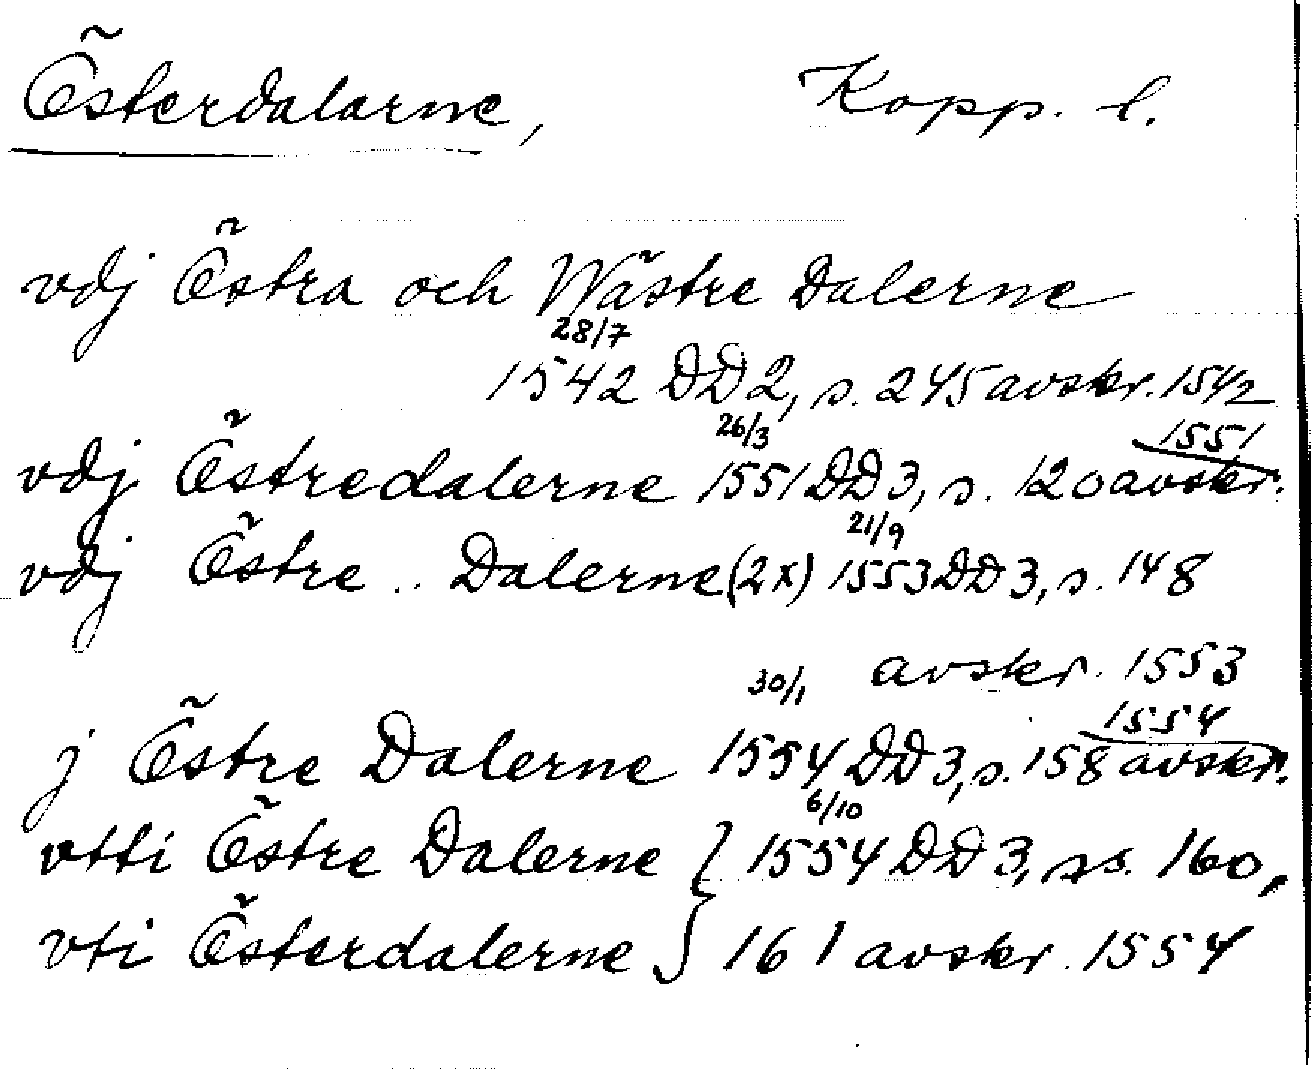 Österdalarne, Kopp. l.
vdj Östra och Wästre Dalerne
28/7
1542 DD2, s. 245 avskr. 1542
26/3 1551
vdj Östredalerne 1551 DD3, s. 120 avskr.
21/9
vdj Östre .. Dalerne (2x) 1553 DD3, s. 148
30/1 avskr. 1553
1554
j Östre Dalerne 1554 DD3, s. 158 avskr.
6/10
vtti Östre Dalerne } 1554 DD3, ss. 160,
vti Österdalerne } 161 avskr. 1554